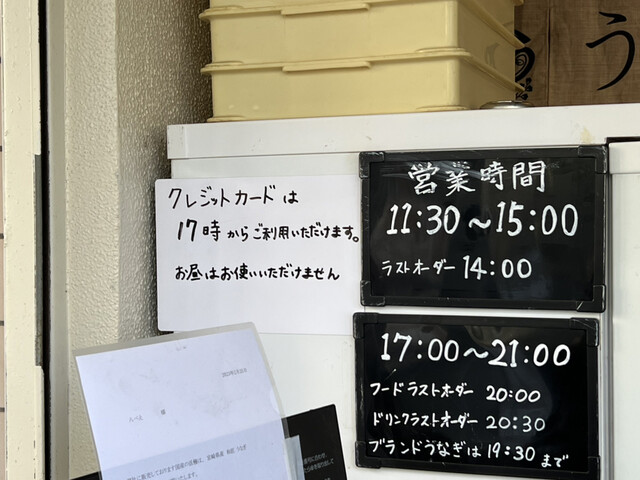 う
クレジットカードは
17時からご利用いただけます。
お昼はお使いいただけません
営業時間
11:30～15:00
ラストオーダー 14:00
17:00～21:00
フードラストオーダー 20:00
ドリンクラストオーダー 20:30
ブランドうなぎは 19:30 まで
様